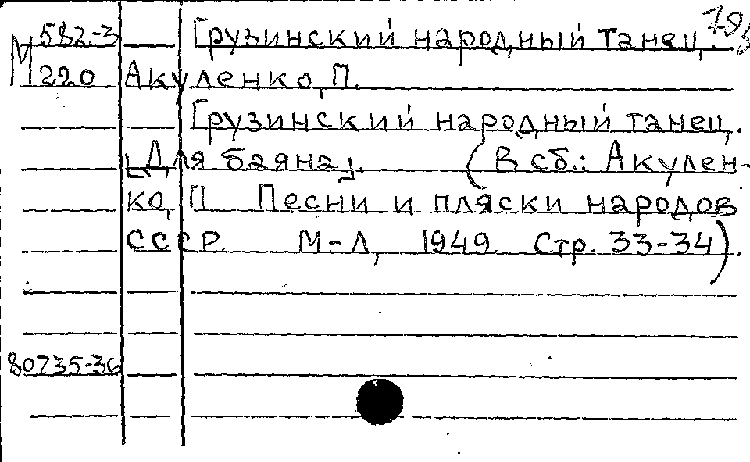 М 582-3 Грузинский народный танец.
220 Акуленко, П.
Грузинский народный танец.
[Для баяна]. (В сб.: Акулен-
ко, П Песни и пляски народов
СССР. М-Л, 1949. Стр. 33-34).
80735-36